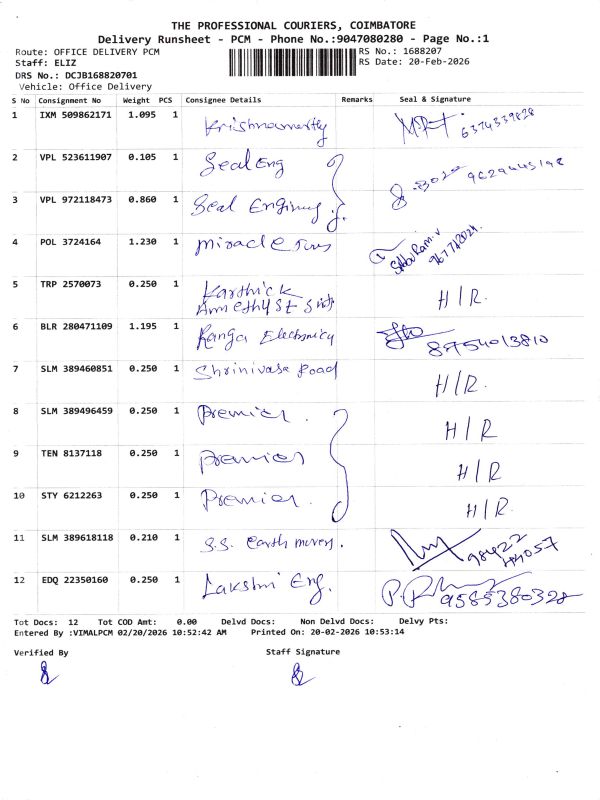 THE PROFESSIONAL COURIERS, COIMBATORE
Delivery Runsheet - PCM - Phone No.:9047080280 - Page No.:1
Route: OFFICE DELIVERY PCM RS No.: 1688207
Staff: ELIZ RS Date: 20-Feb-2026
DRS No.: DCJB168820701
Vehicle: Office Delivery
S No Consignment No Weight PCS Consignee Details Remarks Seal & Signature
1 IXM 509862171 1.095 1 Krishnamurthy 6374339828
2 VPL 523611907 0.105 1 Seal Eng
3 VPL 972118473 0.860 1 Seal 9629445198
4 POL 3724164 1.230 1 Miracle
5 TRP 2570073 0.250 1 Karthick
Amethyst H/R.
6 BLR 280471109 1.195 1 Ranga Electronics 8754013810
7 SLM 389460851 0.250 1 Shrinivasa Road H/R.
8 SLM 389496459 0.250 1 Premier. H/R
9 TEN 8137118 0.250 1 Premier H/R
10 STY 6212263 0.250 1 Premier. H/R.
11 SLM 389618118 0.210 1 S.S. Earth movers. 98422
44057
12 EDQ 22350160 0.250 1 Lakshmi Eng. 9585380328
Tot Docs: 12 Tot COD Amt: 0.00 Delvd Docs: Non Delvd Docs: Delvy Pts:
Entered By :VIMALPCM 02/20/2026 10:52:42 AM Printed On: 20-02-2026 10:53:14
Verified By Staff Signature